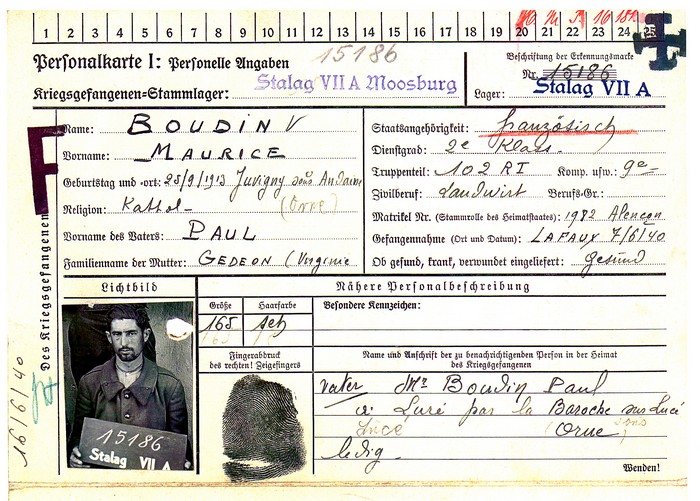 1 2 3 4 5 6 7 8 9 10 11 12 13 14 15 16 17 18 19 20 21 22 23 24 25
Personalkarte I: Personelle Angaben
15186
Kriegsgefangenen-Stammlager: Stalag VII A Moosburg
Beschriftung der Erkennungsmarke
Nr. 15186
Lager: Stalag VII A
F
Des Kriegsgefangenen
Name: BOUDIN
Vorname: MAURICE
Geburtstag und -ort: 25/9/1913 Juvigny sous Andaine
Religion: Kathol- (Orne)
Vorname des Vaters: PAUL
Familienname der Mutter: GEDEON (Virginie
Staatsangehörigkeit: französisch
Dienstgrad: 2e Klass.
Truppenteil: 102 RI Komp. usw. 9e
Zivilberuf: Landwirt Berufs-Gr.:
Matrikel Nr. (Stammrolle des Heimatstaates): 1982 Alençon
Gefangennahme (Ort und Datum): LAFAUX 7/6/40
Ob gesund, krank, verwundet eingeliefert: gesund
Lichtbild
15186
Stalag VII A
Nähere Personalbeschreibung
Größe Haarfarbe
165
Besondere Kennzeichen:
Fingerabdruck
des rechten! Zeigefingers
Name und Anschrift der zu benachrichtigenden Person in der Heimat
des Kriegsgefangenen
Vater Mr Boudin Paul
a Luré par la Baroche sous Lucé
Lucé Orne sous
ledig.
Wenden!
16/6/40